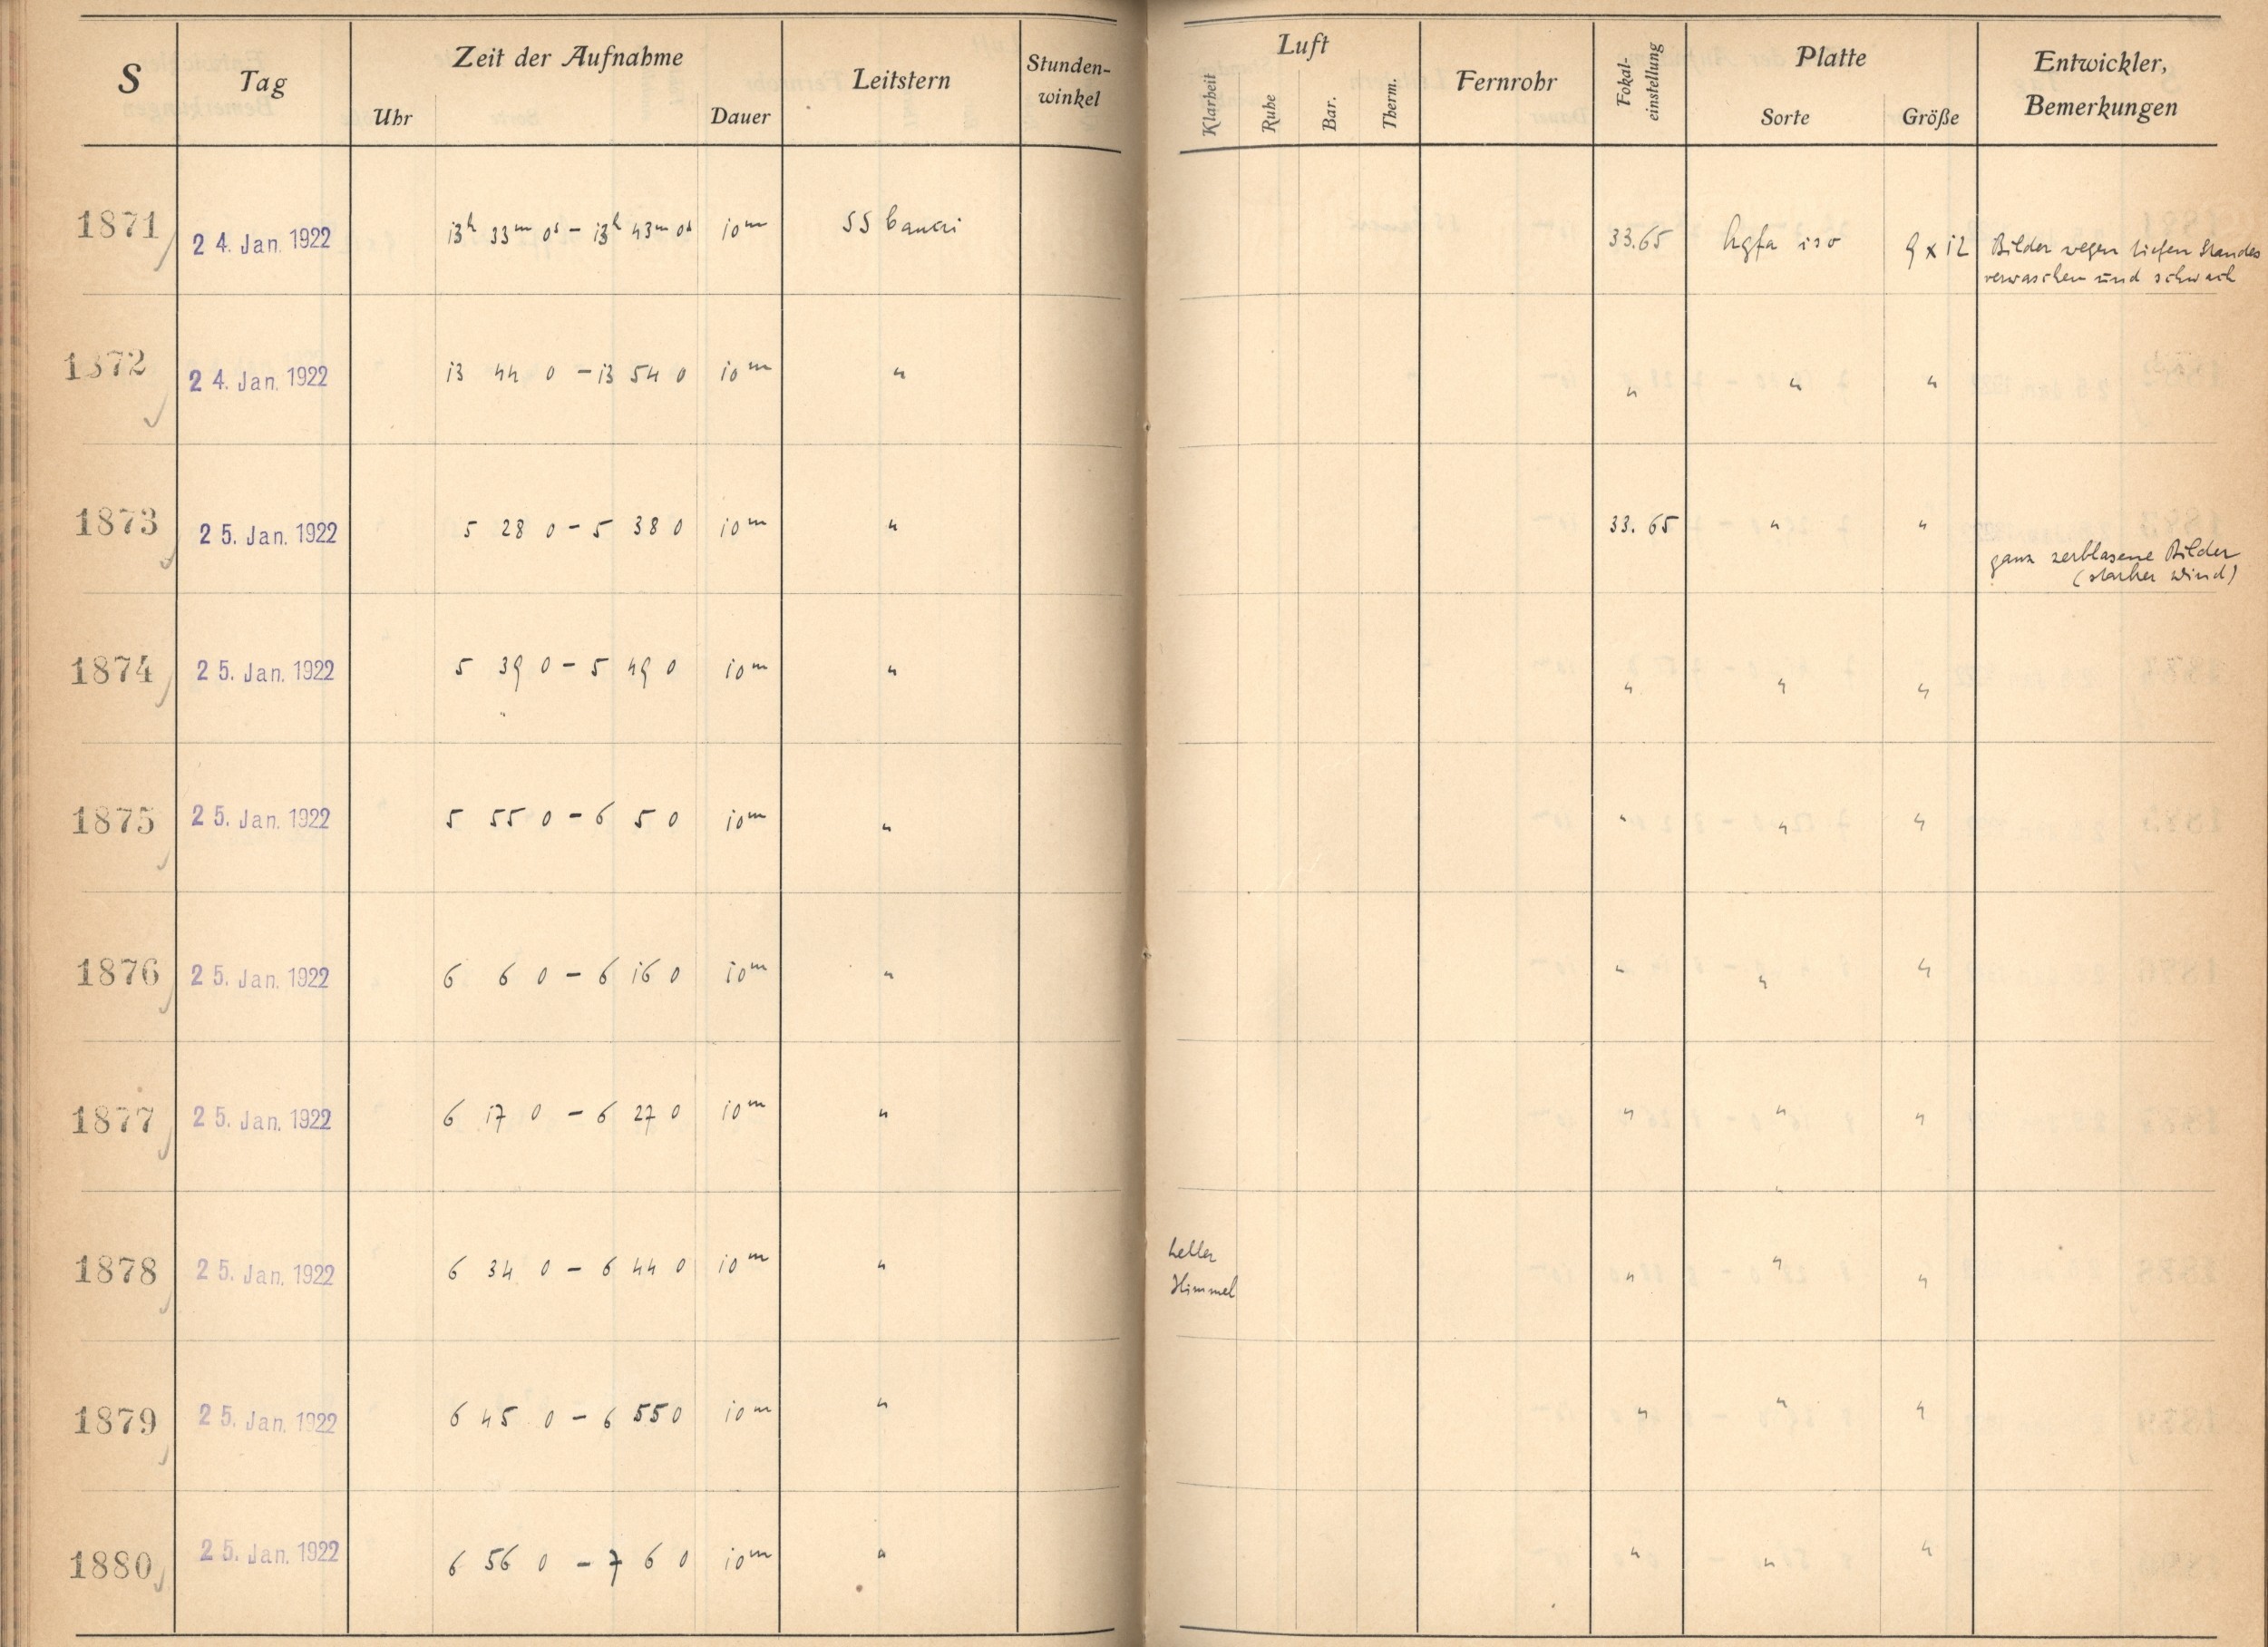 S Tag Zeit der Aufnahme Leitstern Stunden-winkel Luft Fernrohr Fokal-einstellung Platte Entwickler, Bemerkungen
Uhr Dauer Klarheit Ruhe Bar. Therm. Sorte Größe
1871 24. Jan. 1922 13h 33m 0s – 13h 43m 0s 10m SS Cancri 33.65 Agfa iso 9 x 12 Bilder wegen tiefen Standes
verwaschen und schwach
1872 24. Jan. 1922 13 44 0 – 13 54 0 10m " " " "
1873 25. Jan. 1922 5 28 0 – 5 38 0 10m " 33.65 " "
ganz zerblasene Bilder
(starker Wind)
1874 25. Jan. 1922 5 39 0 – 5 49 0 10m " " " "
1875 25. Jan. 1922 5 55 0 – 6 5 0 10m " " " "
1876 25. Jan. 1922 6 6 0 – 6 16 0 10m " " " "
1877 25. Jan. 1922 6 17 0 – 6 27 0 10m " " " "
1878 25. Jan. 1922 6 34 0 – 6 44 0 10m " heller
Himmel " " "
1879 25. Jan. 1922 6 45 0 – 6 55 0 10m " " " "
1880 25. Jan. 1922 6 56 0 – 7 6 0 10m " " " "